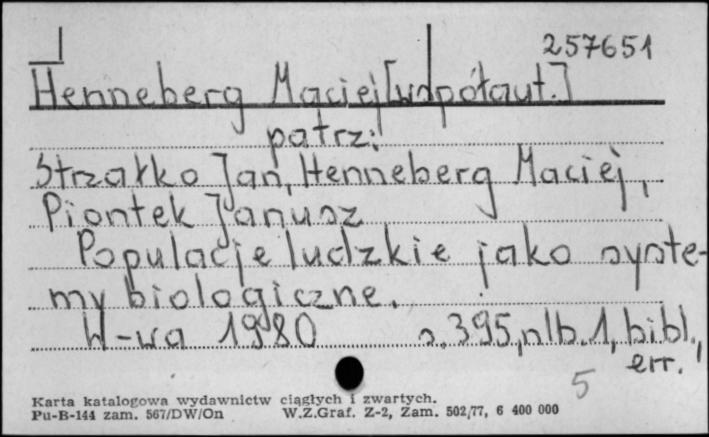 257651
Henneberg Maciej [współaut.]
patrz:
Strzałko Jan, Henneberg Maciej,
Piontek Janusz
Populacje ludzkie jako syste-
my biologiczne.
W-wa 1980 s. 395, nlb. 1, bibl.,
err.
5
Karta katalogowa wydawnictw ciągłych i zwartych.
Pu-B-144 zam. 567/DW/On W.Z.Graf. Z-2, Zam. 502/77, 6 400 000